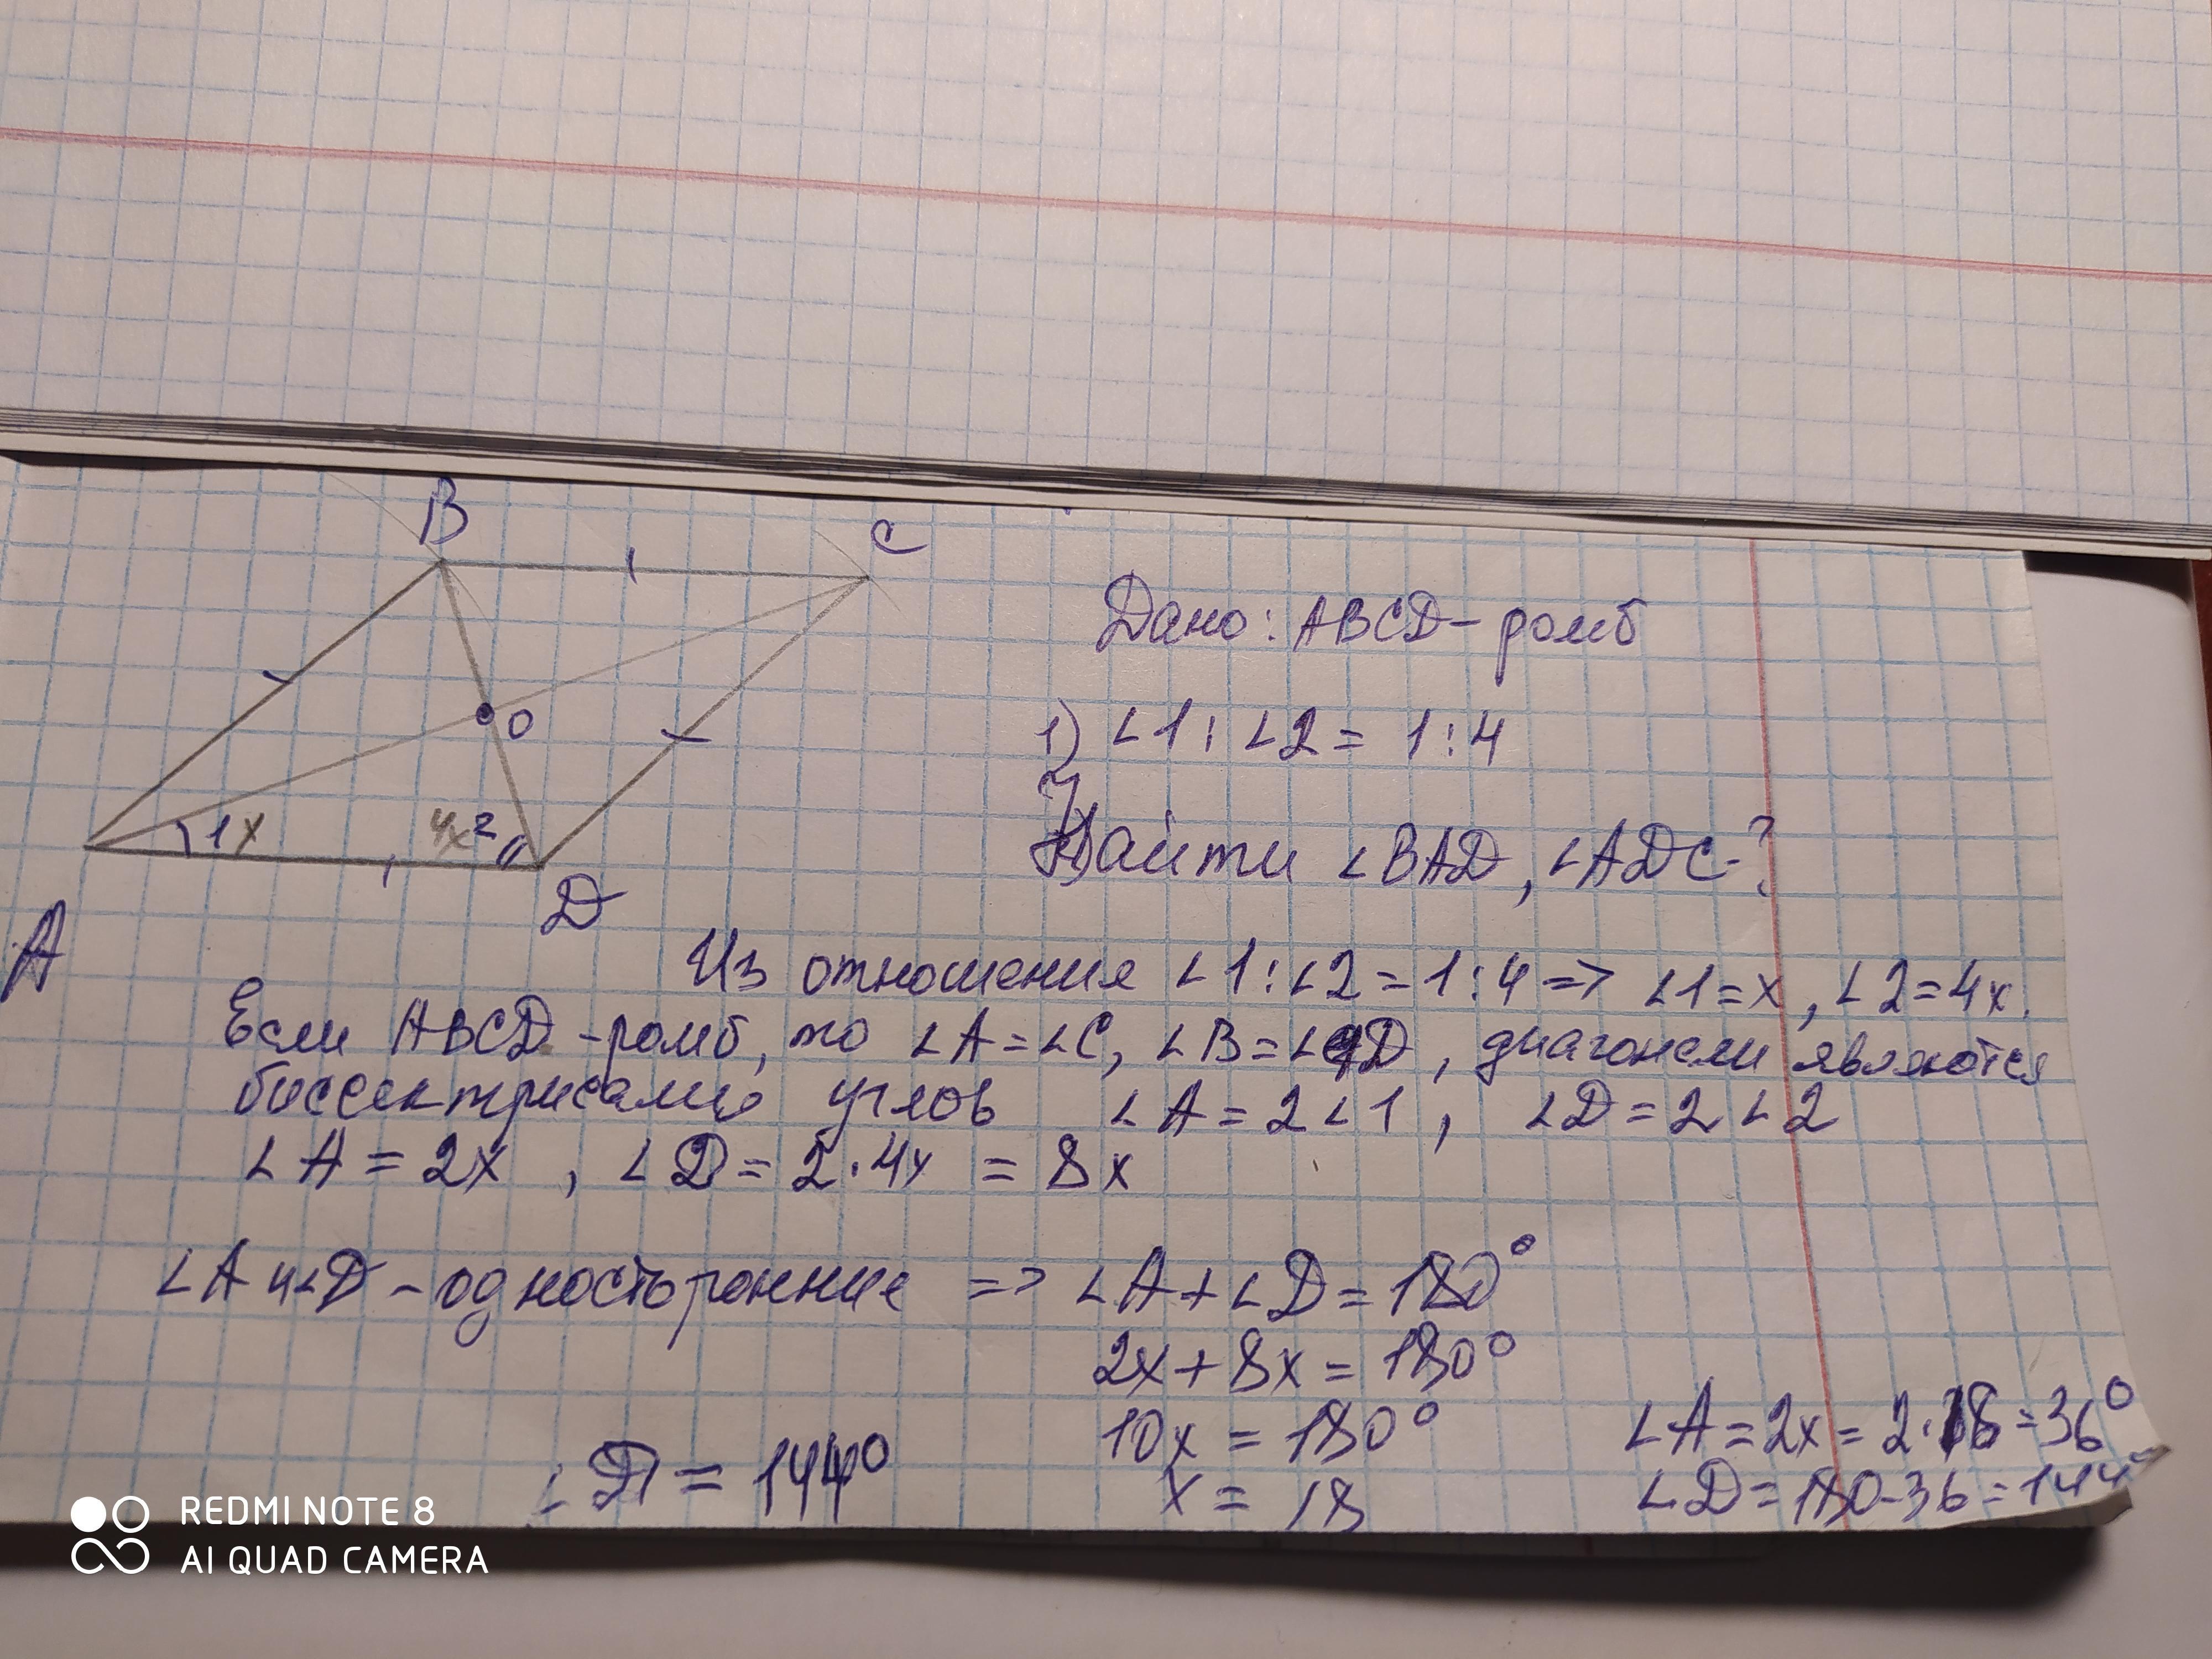 B
C
Дано: ABCD - ромб
O
1) ∠1 : ∠2 = 1 : 4
1 x
4x 2
Найти ∠BAD, ∠ADC - ?
D
A
Из отношения ∠1 : ∠2 = 1 : 4 => ∠1 = x, ∠2 = 4x.
Если ABCD - ромб, то ∠A = ∠C, ∠B = ∠D, диагонали являются
биссектрисами углов ∠A = 2∠1, ∠D = 2∠2
∠A = 2x, ∠D = 2·4x = 8x
∠A и ∠D - односторонние => ∠A + ∠D = 180°
2x + 8x = 180°
10x = 180°
∠A = 2x = 2·18 = 36°
∠D = 144°
x = 18
∠D = 180 - 36 = 144°
REDMI NOTE 8
AI QUAD CAMERA